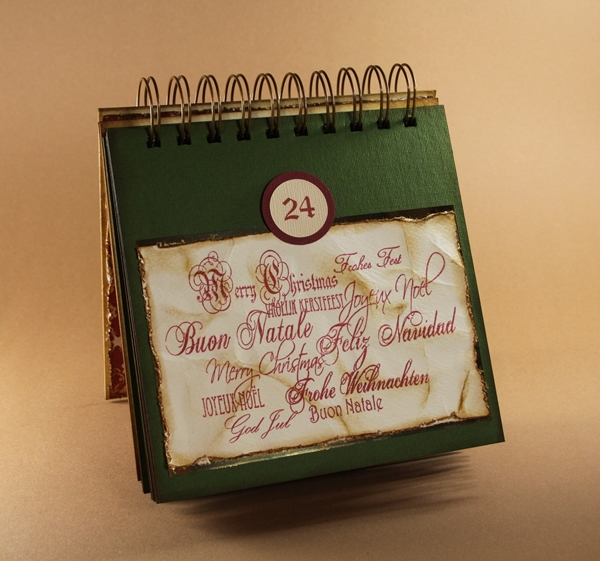 24
Frohes Fest
Merry Christmas
VROLIJK KERSTFEEST
Joyeux Noël
Buon Natale
Feliz Navidad
Merry Christmas
Frohe Weihnachten
JOYEUX NOËL
Buon Natale
God Jul